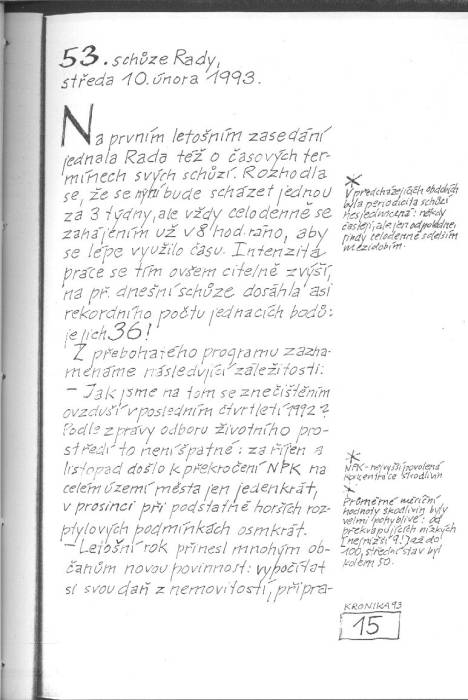 53. schůze Rady,
středa 10. února 1993.
Na prvním letošním zasedání
jednala Rada též o časových ter-
mínech svých schůzí. Rozhodla
se, že se nyní bude scházet jednou
za 3 týdny, ale vždy celodenně se
zahájením už v 8 hod. ráno, aby
se lépe využilo času. Intenzita
práce se tím ovšem citelně zvýší,
na př. dnešní schůze dosáhla asi
rekordního počtu jednacích bodů:
je jich 36!
Z přebohatého programu zazna-
menáme následující záležitosti:
– Jak jsme na tom se znečištěním
ovzduší v posledním čtvrtletí 1992?
Podle zprávy odboru životního pro-
středí to není špatné: za říjen a
listopad došlo k překročení NPK na
celém území města jen jedenkrát,
v prosinci při podstatně horších roz-
ptylových podmínkách osmkrát.
– Letošní rok přinesl mnohým ob-
čanům novou povinnost: vypočítat
si svou daň z nemovitostí, připra-
* V předcházejících obdobích
byla periodicita schůzí
nesjednocená: někdy
častěji, ale jen odpoledne,
jindy celodenně s delším
mezidobím.
* NPK – nejvyšší povolená
koncentrace škodlivin
* Průměrné měsíční
hodnoty škodlivin byly
velmi pohyblivé: od
překvapujících nízkých
(nejnižší 9!) až do
100, střední stav byl
kolem 50.
KRONIKA 93
15